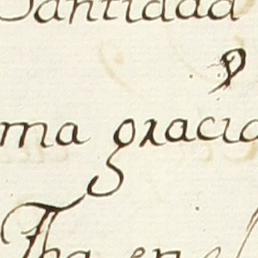 Santidad
y
ma gracia
Tha en el